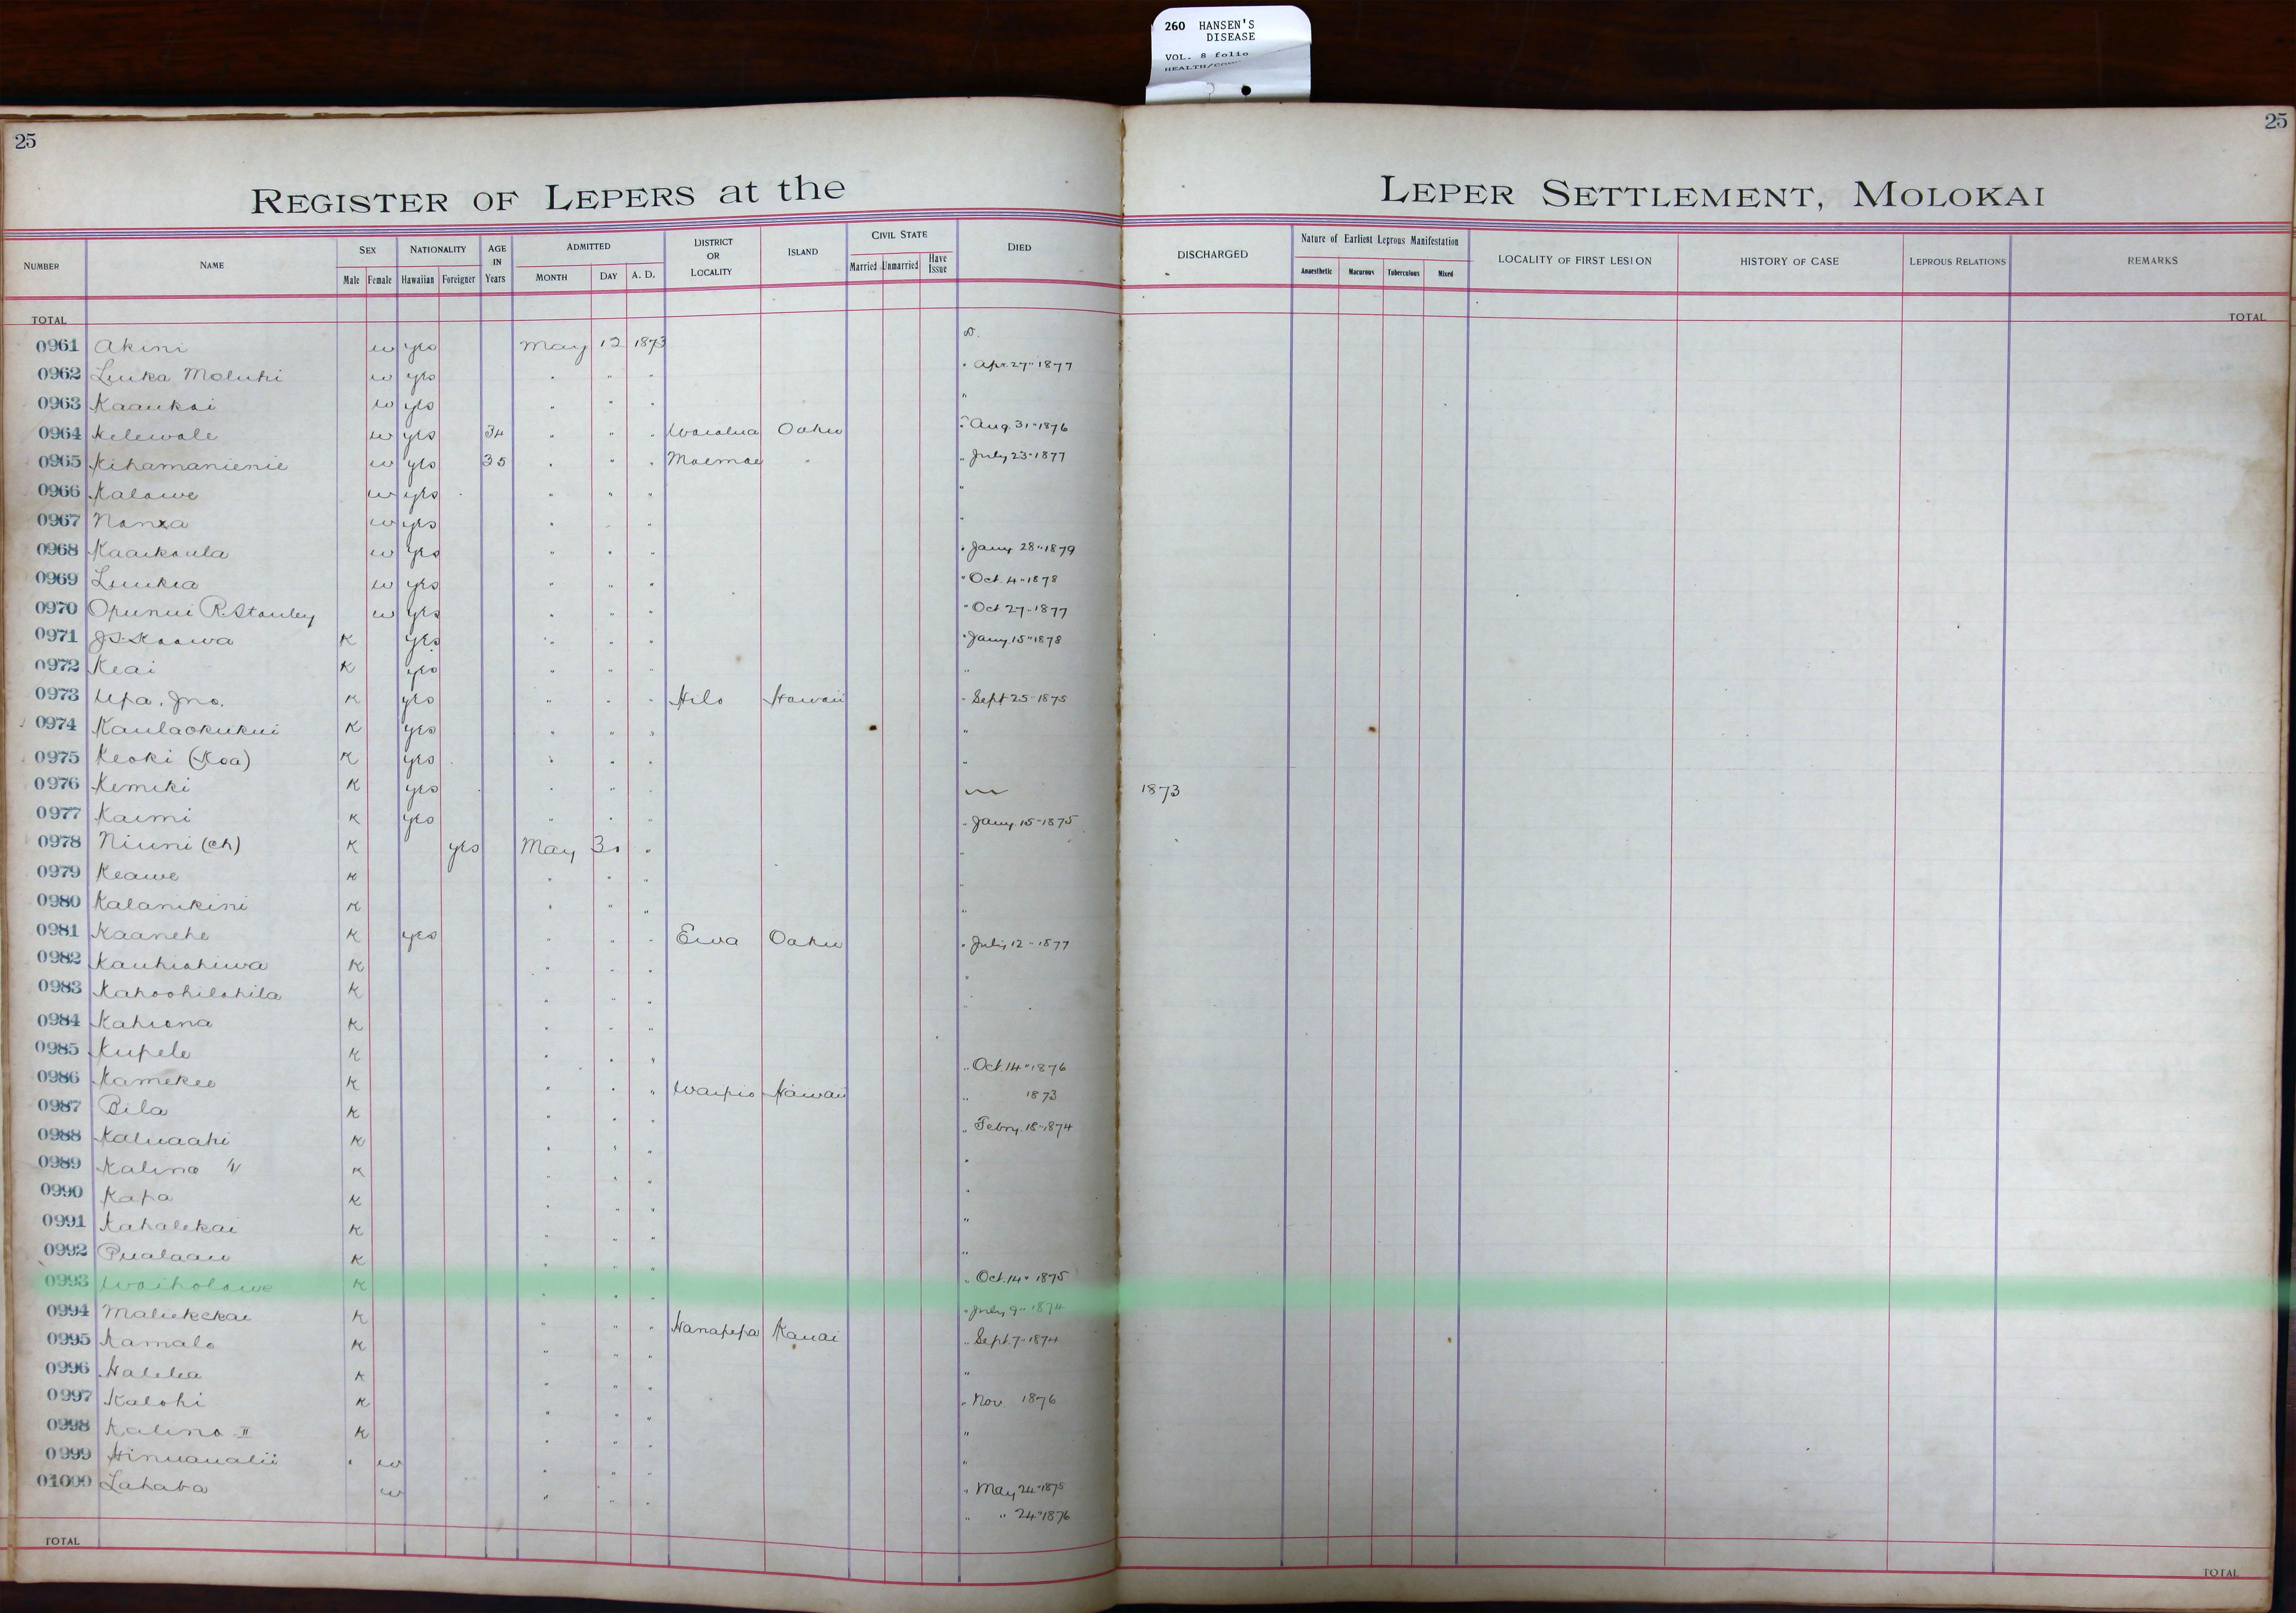 260 HANSEN'S
DISEASE
VOL. 8 folio
25
25
REGISTER OF LEPERS at the LEPER SETTLEMENT, MOLOKAI
NUMBER NAME SEX Male Female NATIONALITY Hawaiian Foreigner AGE IN Years ADMITTED MONTH DAY A. D. DISTRICT OR LOCALITY ISLAND CIVIL STATE Married Unmarried Have Issue DIED DISCHARGED Nature of Earliest Leprous Manifestation Anaesthetic Macurous Tuberculous Mixed LOCALITY OF FIRST LESION HISTORY OF CASE LEPROUS RELATIONS REMARKS
TOTAL TOTAL
0961 Akini w yes May 12 1873 D.
0962 Luika Moluhi w yes " " " " Apr. 27" 1877
0963 Kaaukai w yes " " " "
0964 Kelewale w yes 34 " " " Waialua Oahu " Aug. 31" 1876
0965 Kihamanienie w yes 35 " " " Moemoe " " July 23" 1877
0966 Kalawe w yes " " " "
0967 w yes " " " "
0968 Kaaikaula w yes " " " " Jany. 28" 1879
0969 Luukia w yes " " " " Oct. 4" 1878
0970 Opunui R. Stanley w yes " " " " Oct 27" 1877
0971 J.S. Kaawa K yes " " " " Jany. 15" 1878
0972 Keai K yes " " " "
0973 Upa, Jno. K yes " " " Hilo Hawaii " Sept 25" 1875
0974 Kaulaokukui K yes " " " "
0975 Keoki (Koa) K yes " " " "
0976 Kemiki K yes " " " 1873
0977 Kaimi K yes " " " " Jany. 15" 1875
0978 Niuni (ch) K yes May 30 " "
0979 Keawe K " " " "
0980 Kalanikini K " " " "
0981 Kaanehe K yes " " " Ewa Oahu " July 12" 1877
0982 Kauhiahiwa K " " " "
0983 Kahoohilahila K " " " "
0984 Kahiona K " " "
0985 Kupele K " " " " Oct. 14" 1876
0986 Kamekeo K " " " Waipio Hawaii " 1873
0987 Bila K " " " " Febry. 18" 1874
0988 Kaluaahi K " " " "
0989 Kalino K " " " "
0990 Kapa K " " " "
0991 Kahalekai K " " " "
0992 Pualaau K " " " " Oct. 14" 1875
0993 Waiholowe K " " " " July 9" 1874
0994 Maliekekai K " " " Hanapepa Kauai " Sept. 7" 1874
0995 Kamalo K " " " "
0996 Halelea K " " " " Nov. 1876
0997 Kalohi K " " " "
0998 Kalino II K " " " "
0999 Hinuaualii w " " " " May 24" 1875
01000 Lahaba w " " " " " 24" 1876
TOTAL TOTAL